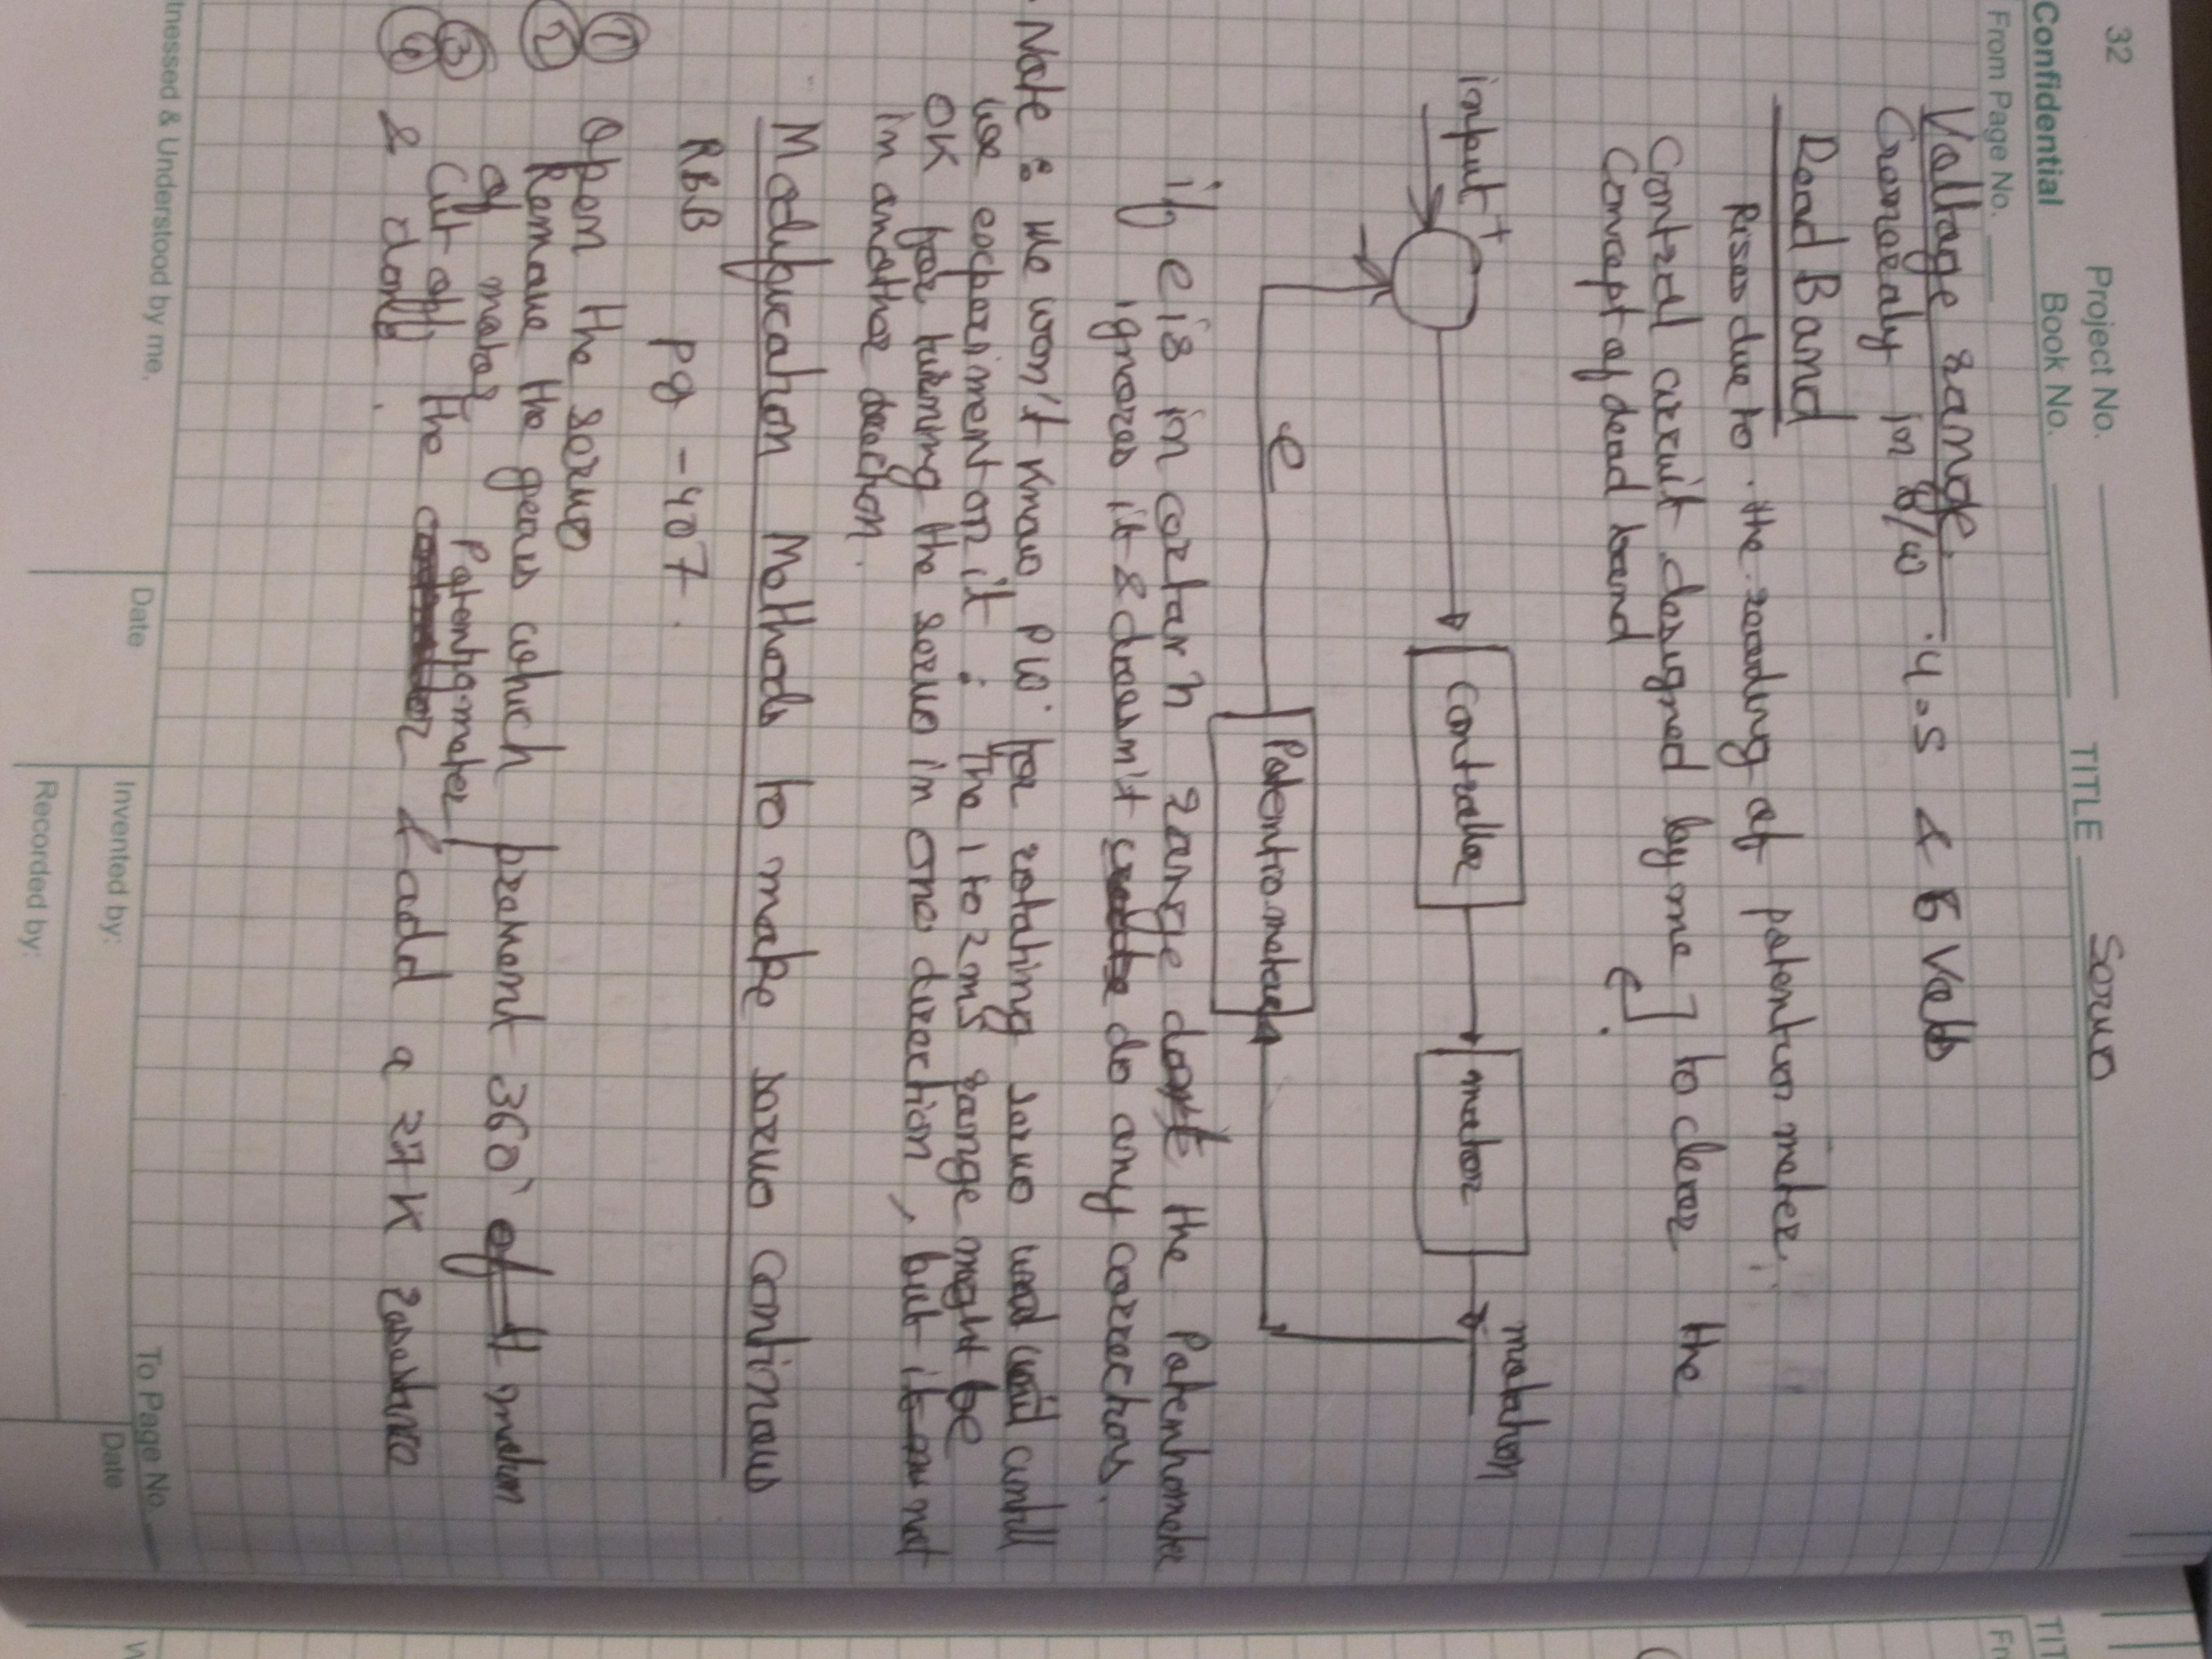 32
Project No.
TITLE Servo
Confidential
Book No.
From Page No.
Voltage range
Generaly in B/w 4.5 & 6 Volts
Dead Band
Rises due to the reading of potention meter
Control circuit designed by me ] to clear the
Concept of dead band
input +
Controller
motor
motation
e
Potentio.meter
if e is in certain range don't the Potentiometer
ignores it & droesn't do any corrections.
Note : We won't know PW for rotating servo
we experiment on it : The 1 to 2 ms range might be
OK for turning the servo in one direction, but not
in another direction.
Modification Methods to make servo continous
RBB Pg - 407.
① Open the servo
② Remove the gears which prement 360° motion
of motor
③ Cut off the Potentiometer & add a 27K resistance
④ & done.
tnessed & Understood by me,
Date
Invented by:
Recorded by:
Date
To Page No.
TIT
Fr
W